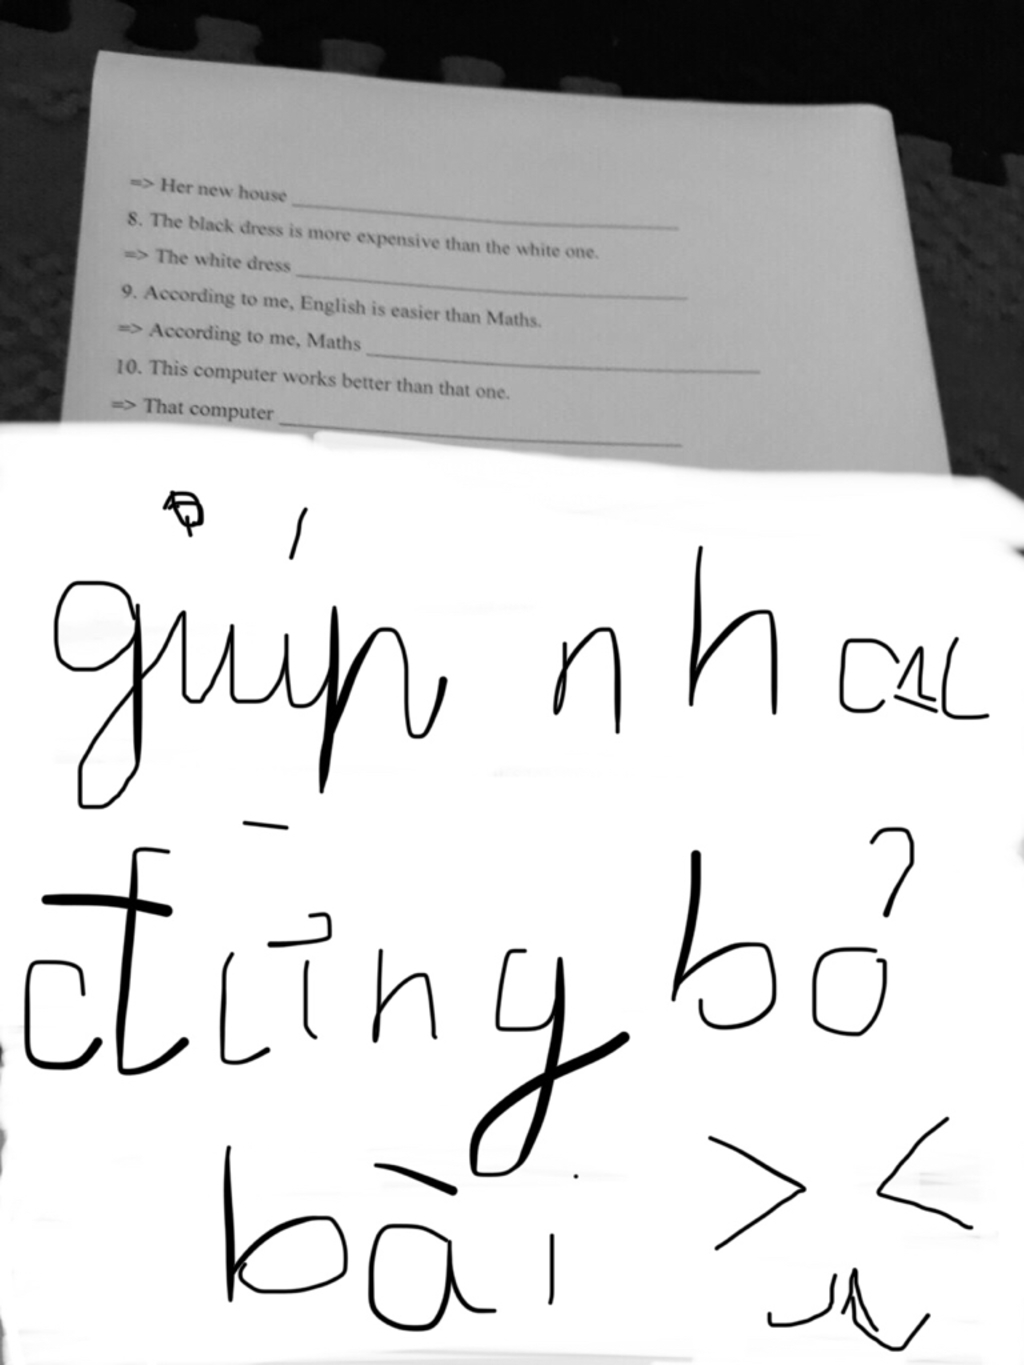 => Her new house
8. The black dress is more expensive than the white one.
=> The white dress
9. According to me, English is easier than Maths.
=> According to me, Maths
10. This computer works better than that one.
=> That computer
giúp nha
đừng bỏ
bài